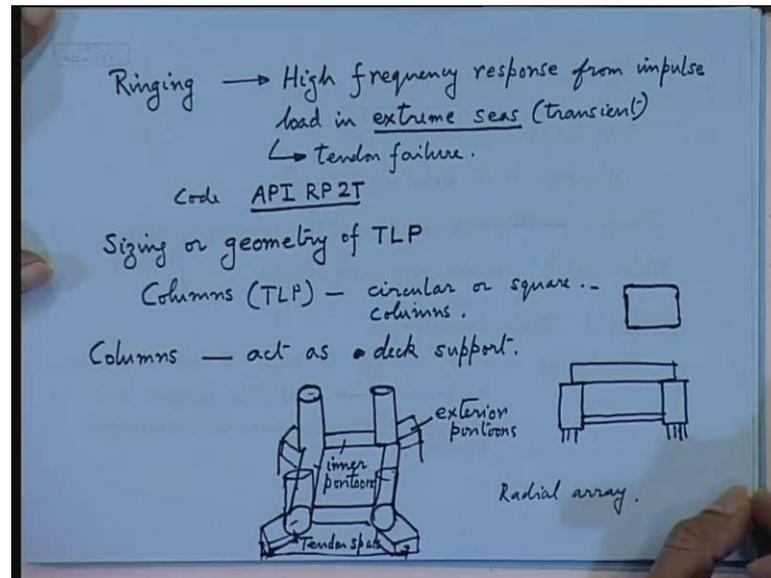 Ringing → High frequency response from impulse
load in extreme seas (transient)
↳ tendon failure.
Code API RP 2T
Sizing or geometry of TLP
Columns (TLP) – circular or square
columns.
Columns — act as deck support.
exterior
pontoons
inner
pontoon
Radial array.
Tendon space